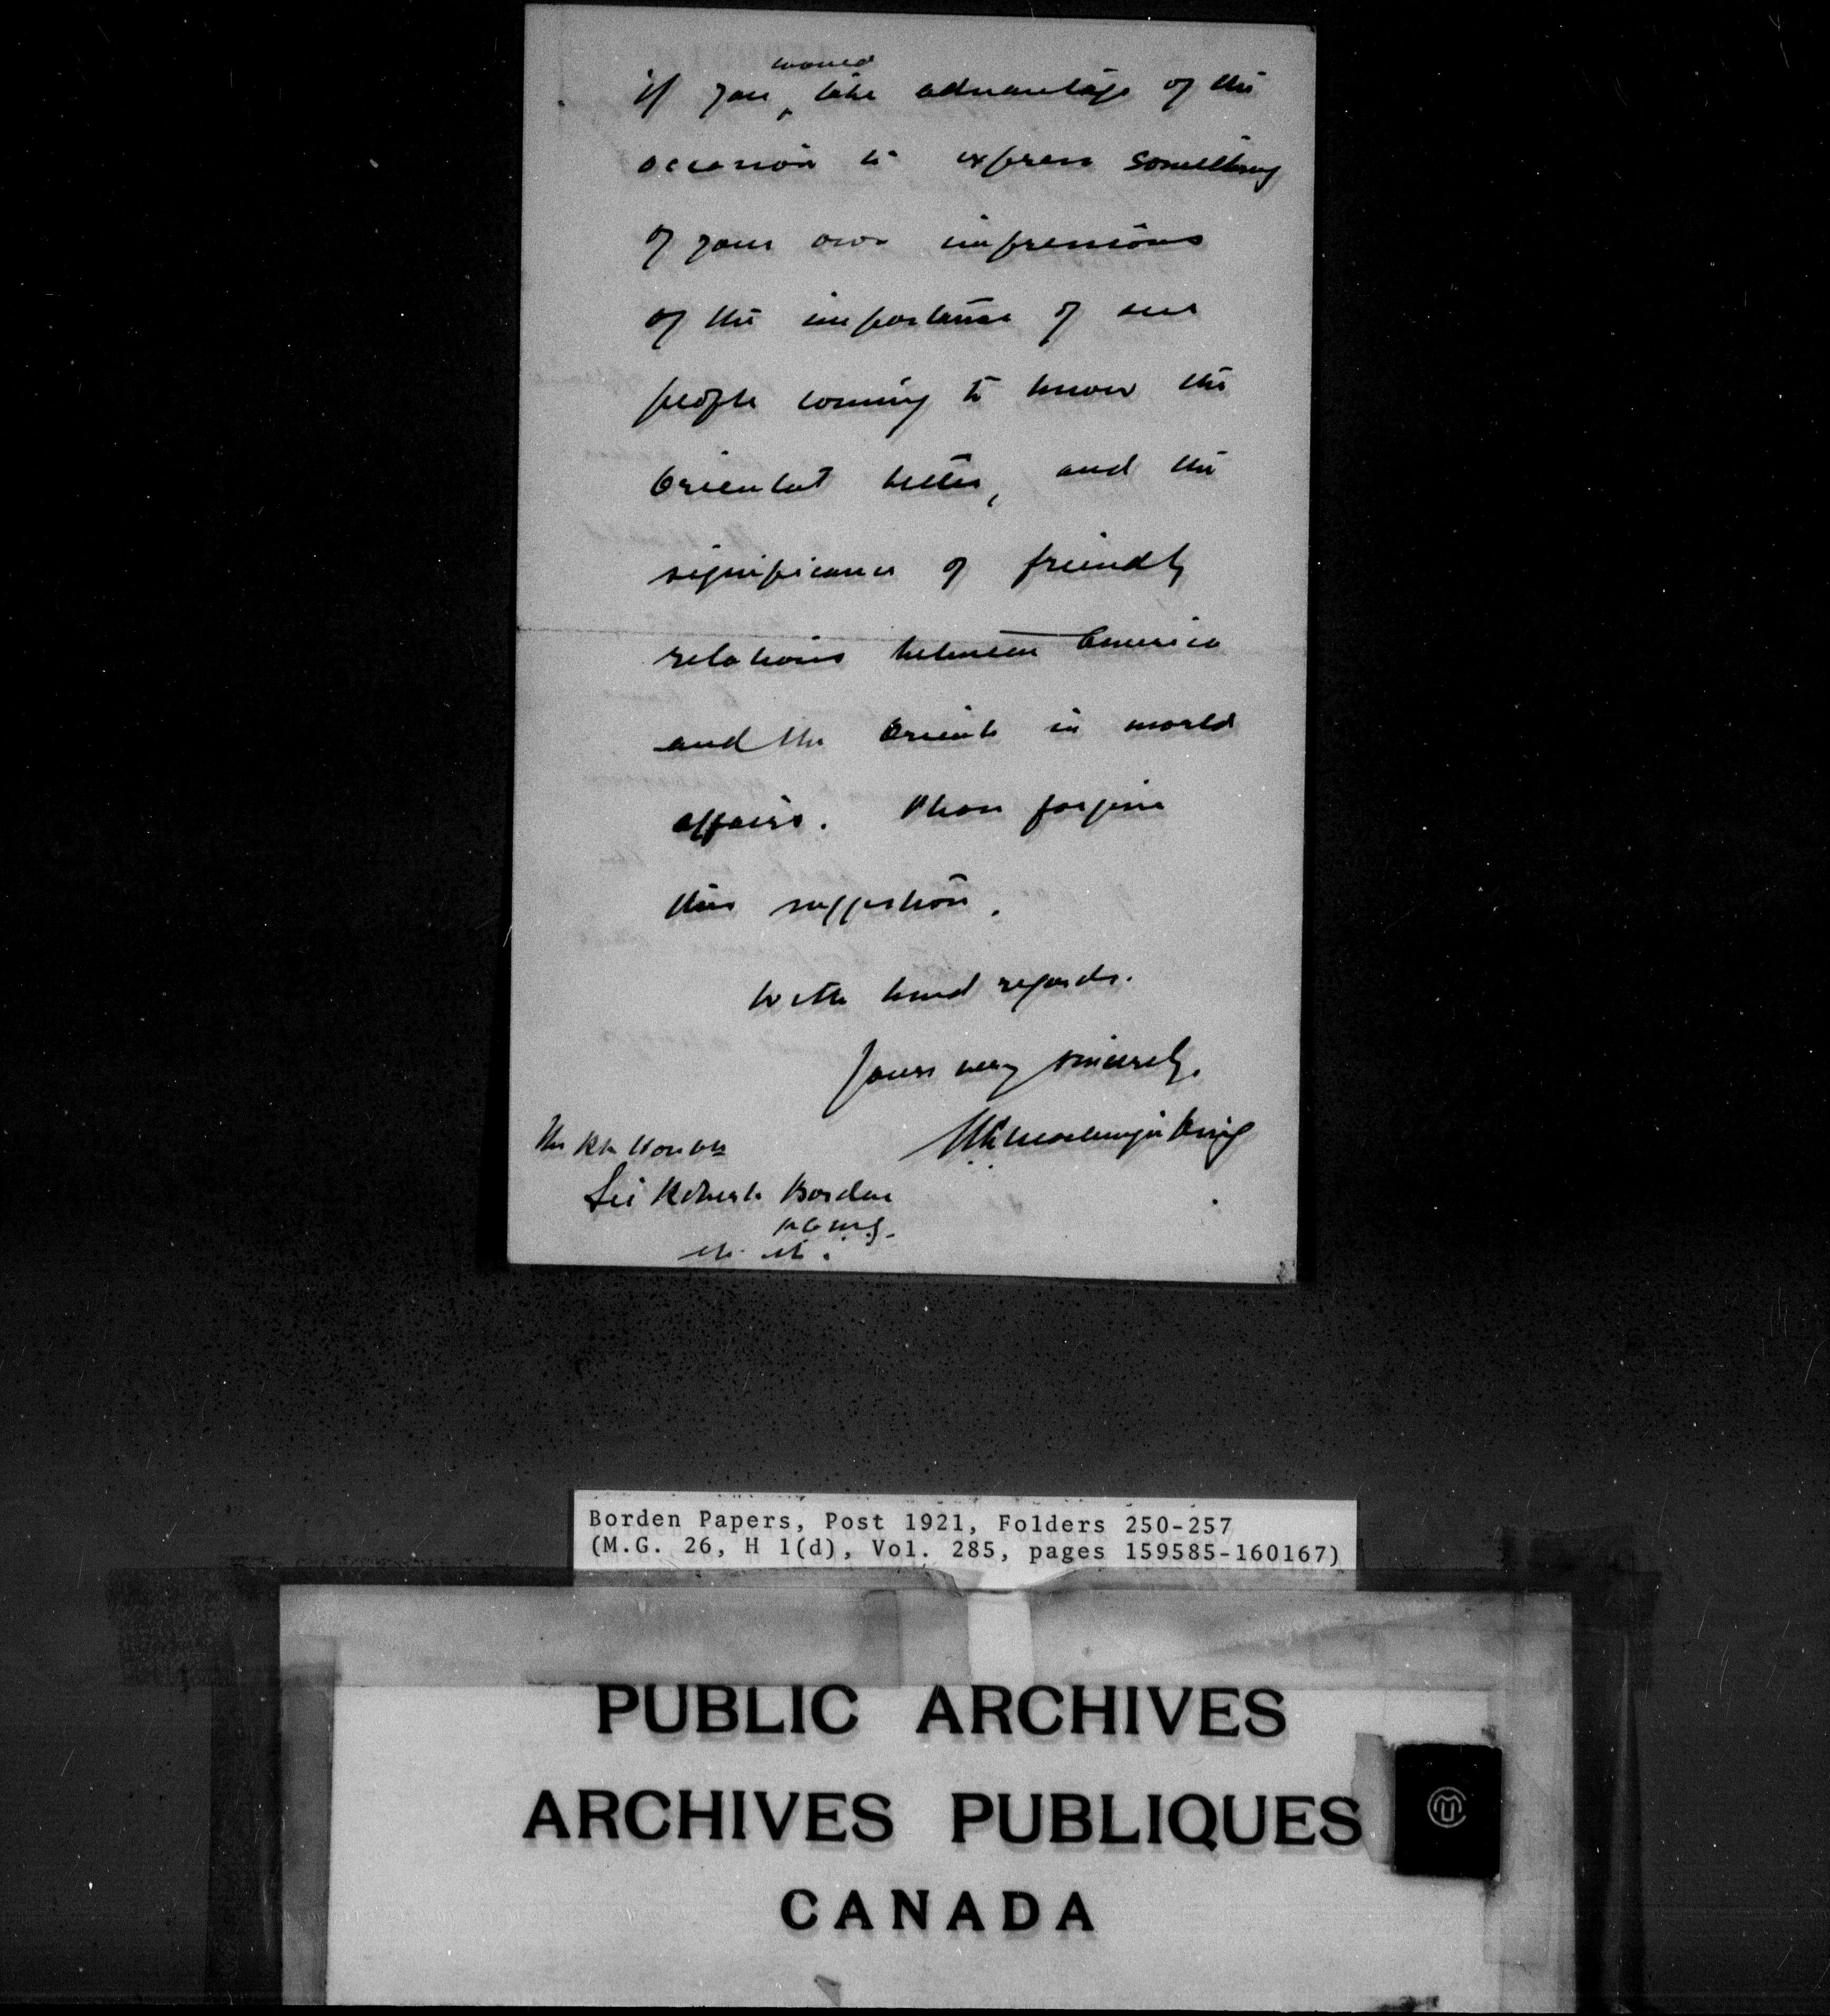 would
if you ‸ take advantage of the
occasion to express something
of your own impressions
of the importance of our
people coming to know the
Orient better, and the
significance of friendly
relations between America
and the Orient in world
affairs. Please forgive
this suggestion.
With kind regards.
Yours very sincerely,
W L Mackenzie King
The Rt. Honble
Sir Robert Borden
K.C.M.G.
Borden Papers, Post 1921, Folders 250-257
(M.G. 26, H 1(d), Vol. 285, pages 159585-160167)
PUBLIC ARCHIVES
ARCHIVES PUBLIQUES
CANADA